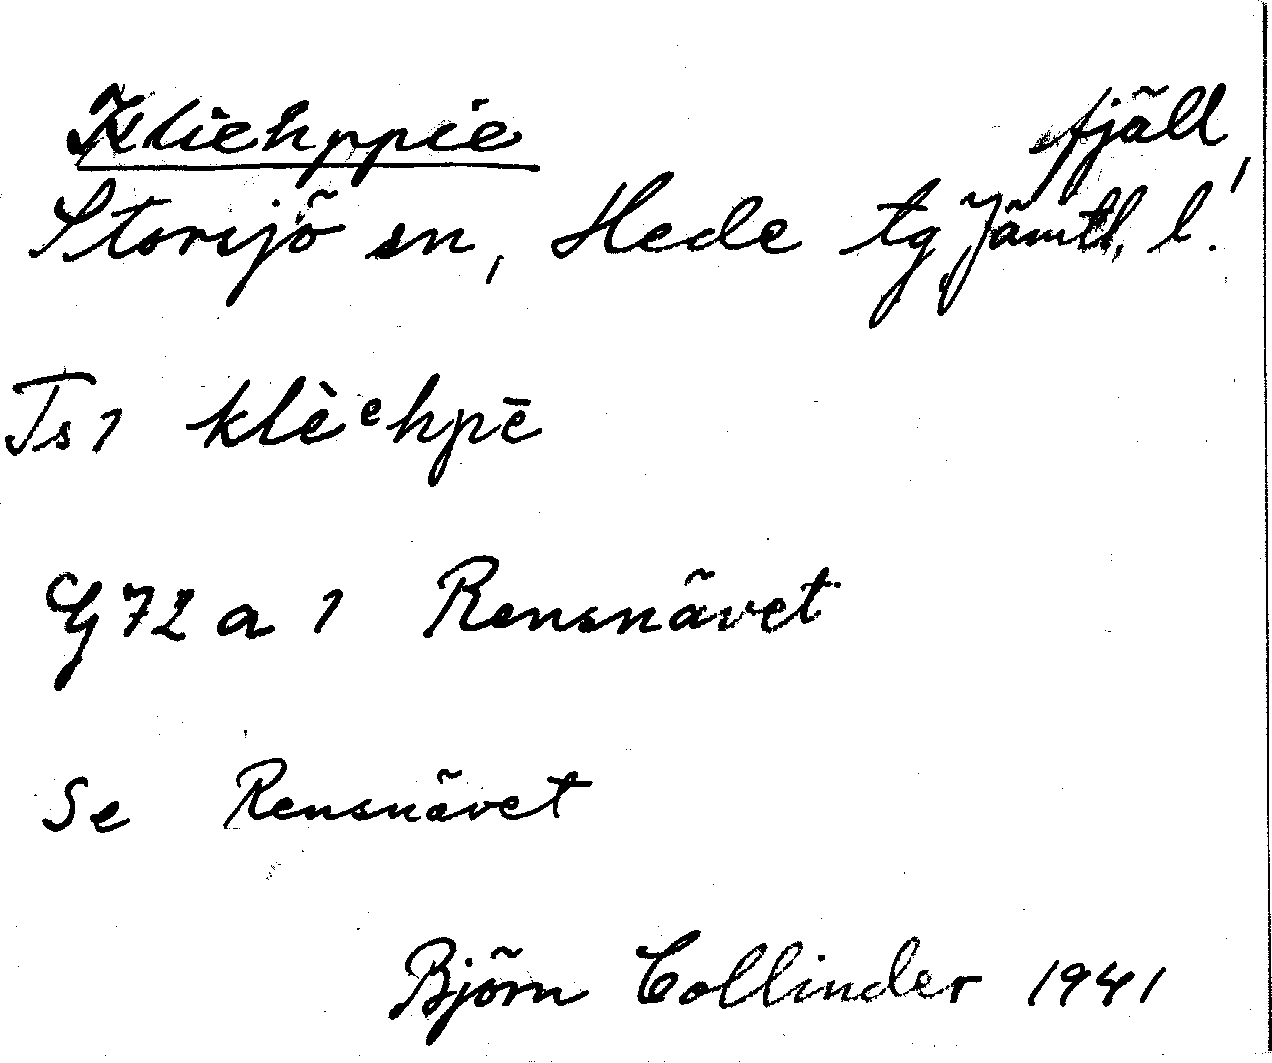 Kliehppie fjäll,
Storsjö sn, Hede tg Jämtl. l.
Ts 1 klèᵉhpē
G 72 a 1 Rensnävet
Se Rensnävet
Björn Collinder 1941